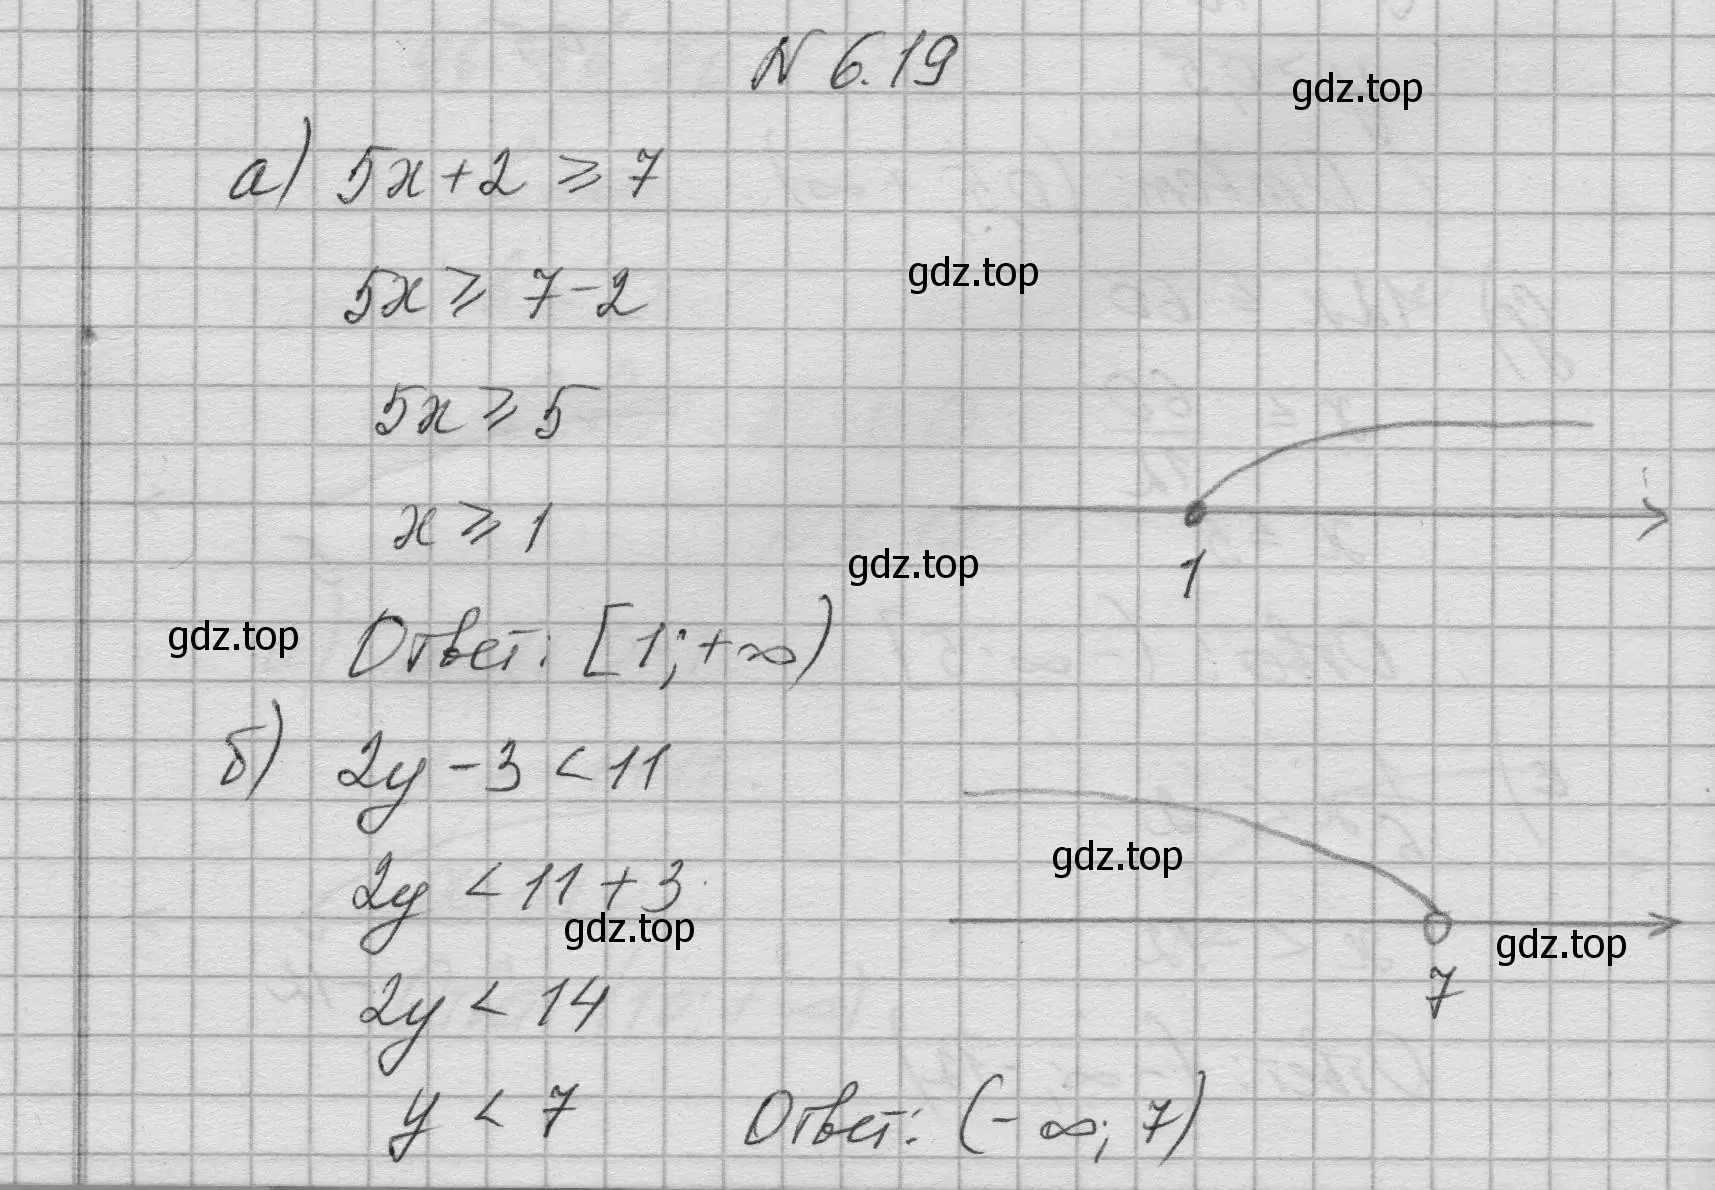 N 6.19
gdz.top
а) 5x+2 ⩾ 7
gdz.top
5x ⩾ 7-2
5x ⩾ 5
x ⩾ 1
1
gdz.top
gdz.top
Ответ: [1; +∞)
б) 2y - 3 < 11
gdz.top
2y < 11 + 3
gdz.top
gdz.top
7
2y < 14
y < 7 Ответ: (-∞; 7)